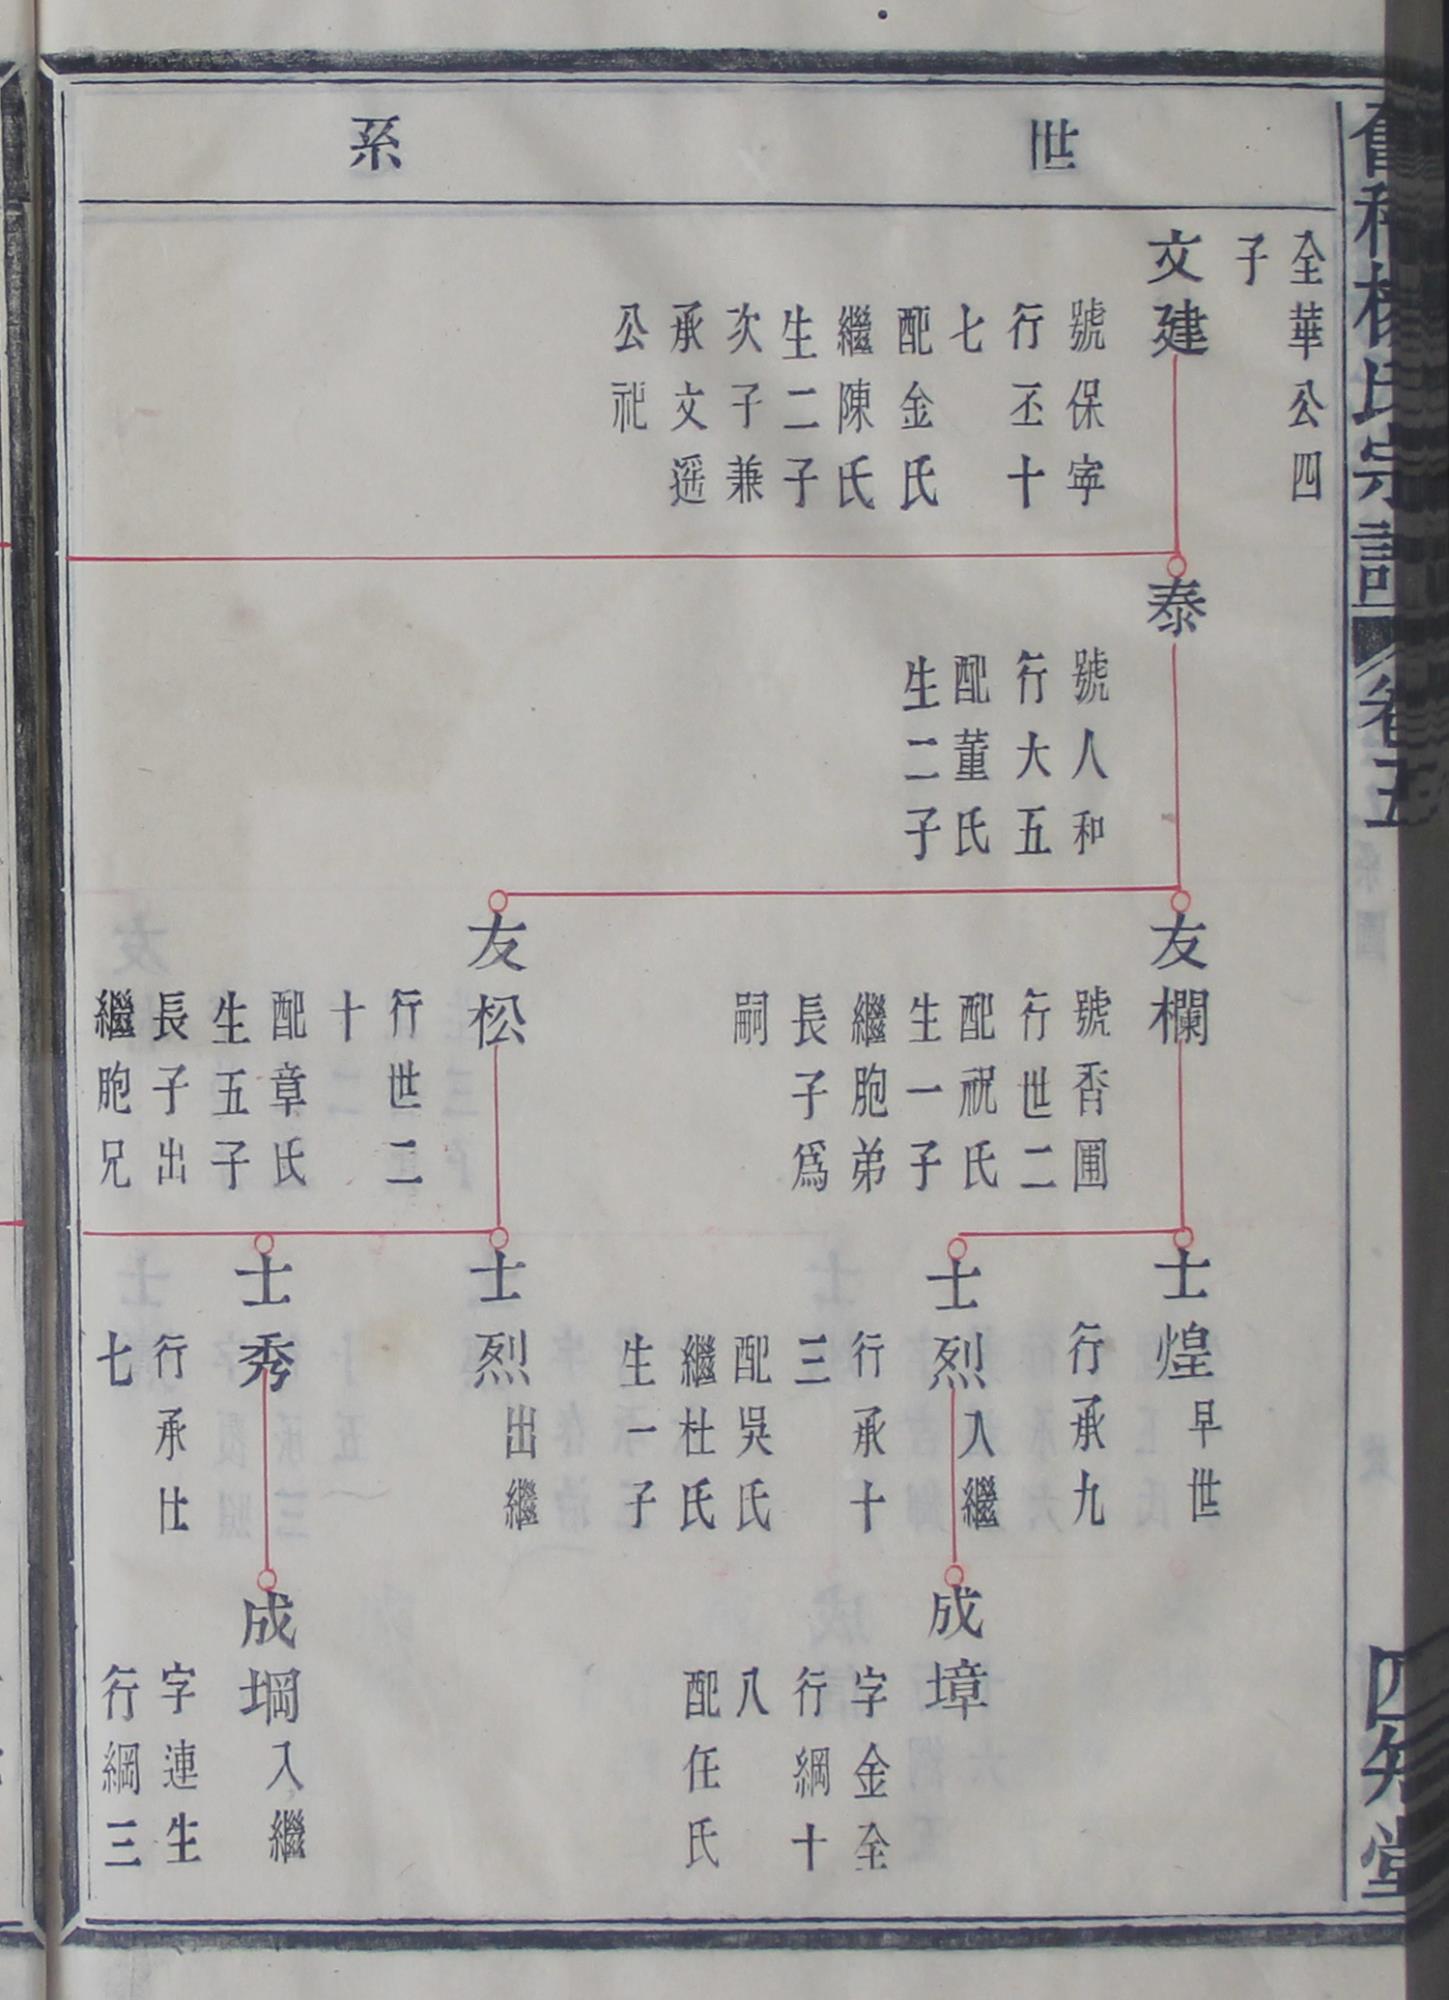 世系
全華公四
子
文建
號保寧
行丕十
七
配金氏
繼陳氏
生二子
次子兼
承文遥
公祀
泰
號人和
行大五
配董氏
生二子
友欄
號香圃
行世二
配祝氏
生一子
繼胞弟
長子爲
嗣
友松
行世二
十
配章氏
生五子
長子出
繼胞兄
士煌早世
行承九
士烈入繼
行承十
三
配吳氏
繼杜氏
生一子
士烈出繼
士秀
行承仕
七
成墇
字金全
行綱十
八
配任氏
成堈入繼
字連生
行綱三
楊氏宗譜
卷五
四知堂